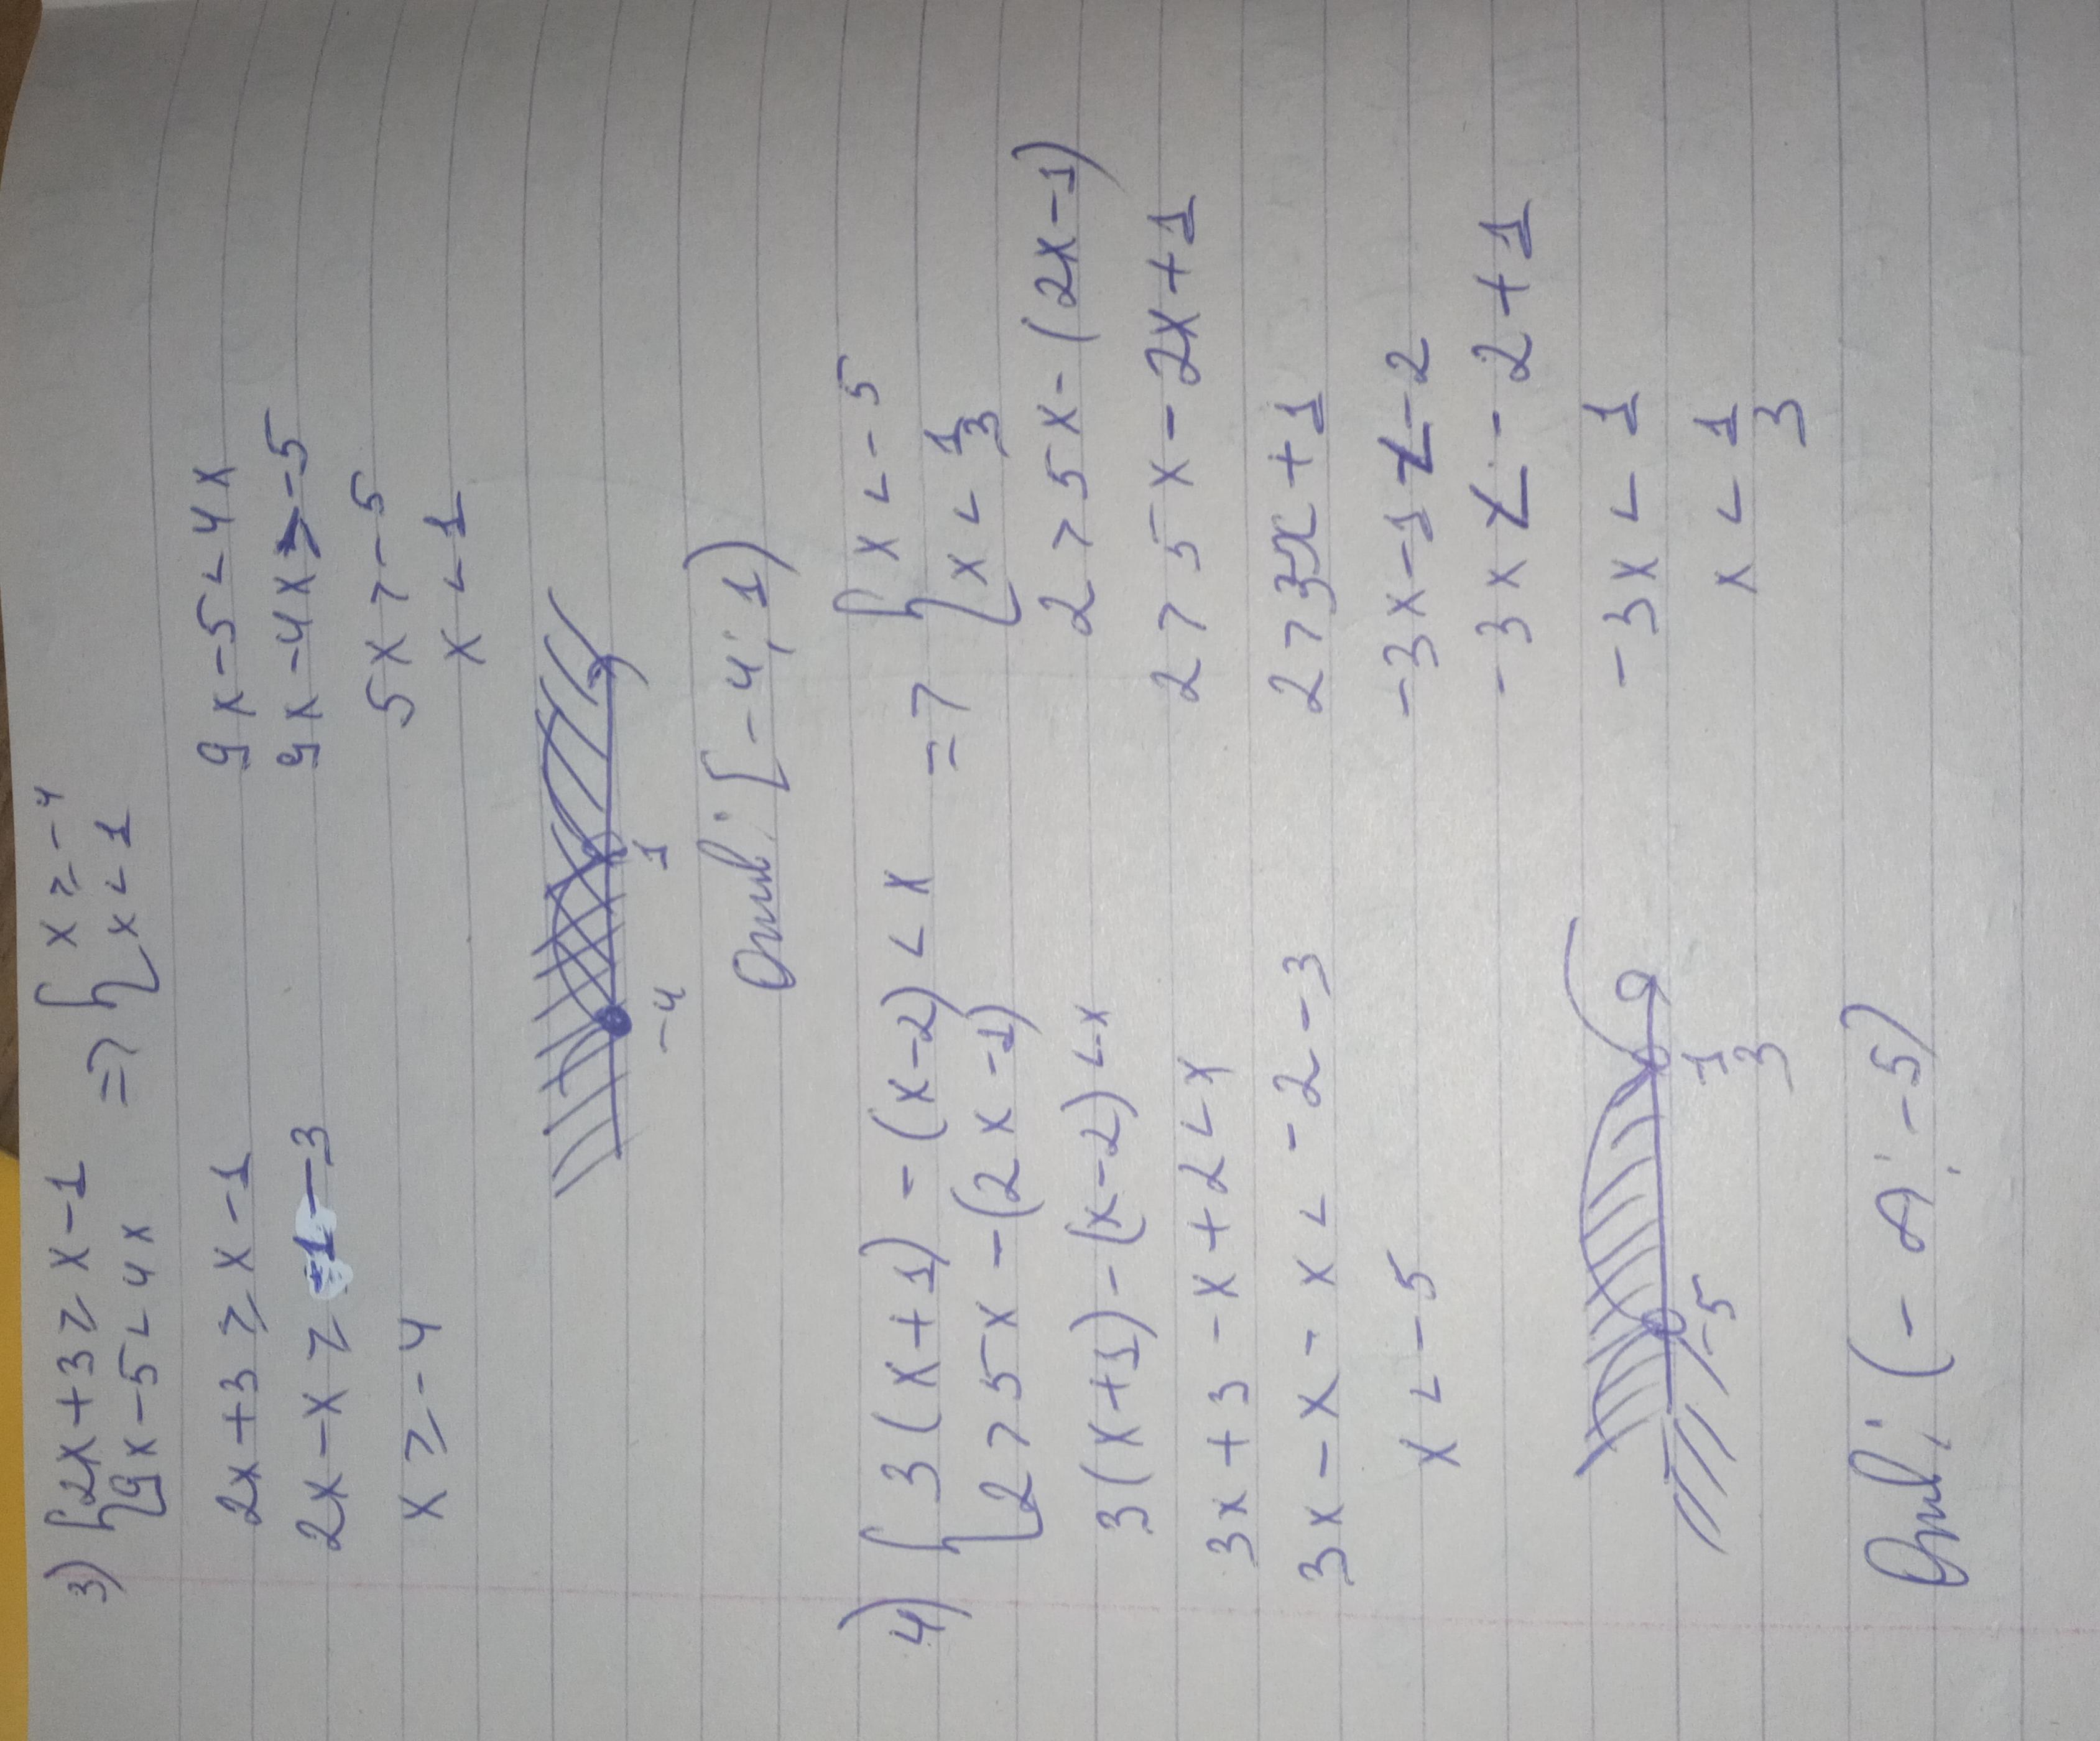 3) { 2x+3 ≥ x-1 => { x ≥ -4
{ 9x-5 < 4x { x < 1
2x+3 ≥ x-1
2x-x ≥ -1-3
x ≥ -4
9x-5 < 4x
9x-4x > -5
5x > -5
x < 1
-4 1
[-4; 1)
4) { 3(x+1) - (x-2) < x => { x < -5
{ 2 > 5x - (2x-1) { x < 1/3
3(x+1) - (x-2) < x
3x+3-x+2 < x
3x-x-x < -2-3
x < -5
2 > 5x-(2x-1)
2 > 5x-2x+1
2 > 3x+1
-3x-1 < -2
-3x < -2+1
-3x < 1
x < 1/3
-5 1/3
-5)